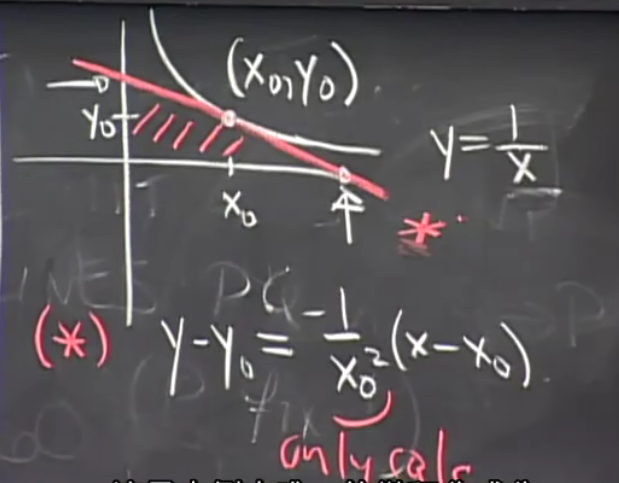 (x₀,y₀)
y₀
y=1/x
x₀
*
(*) y-y₀=-1/x₀²(x-x₀)
only calc